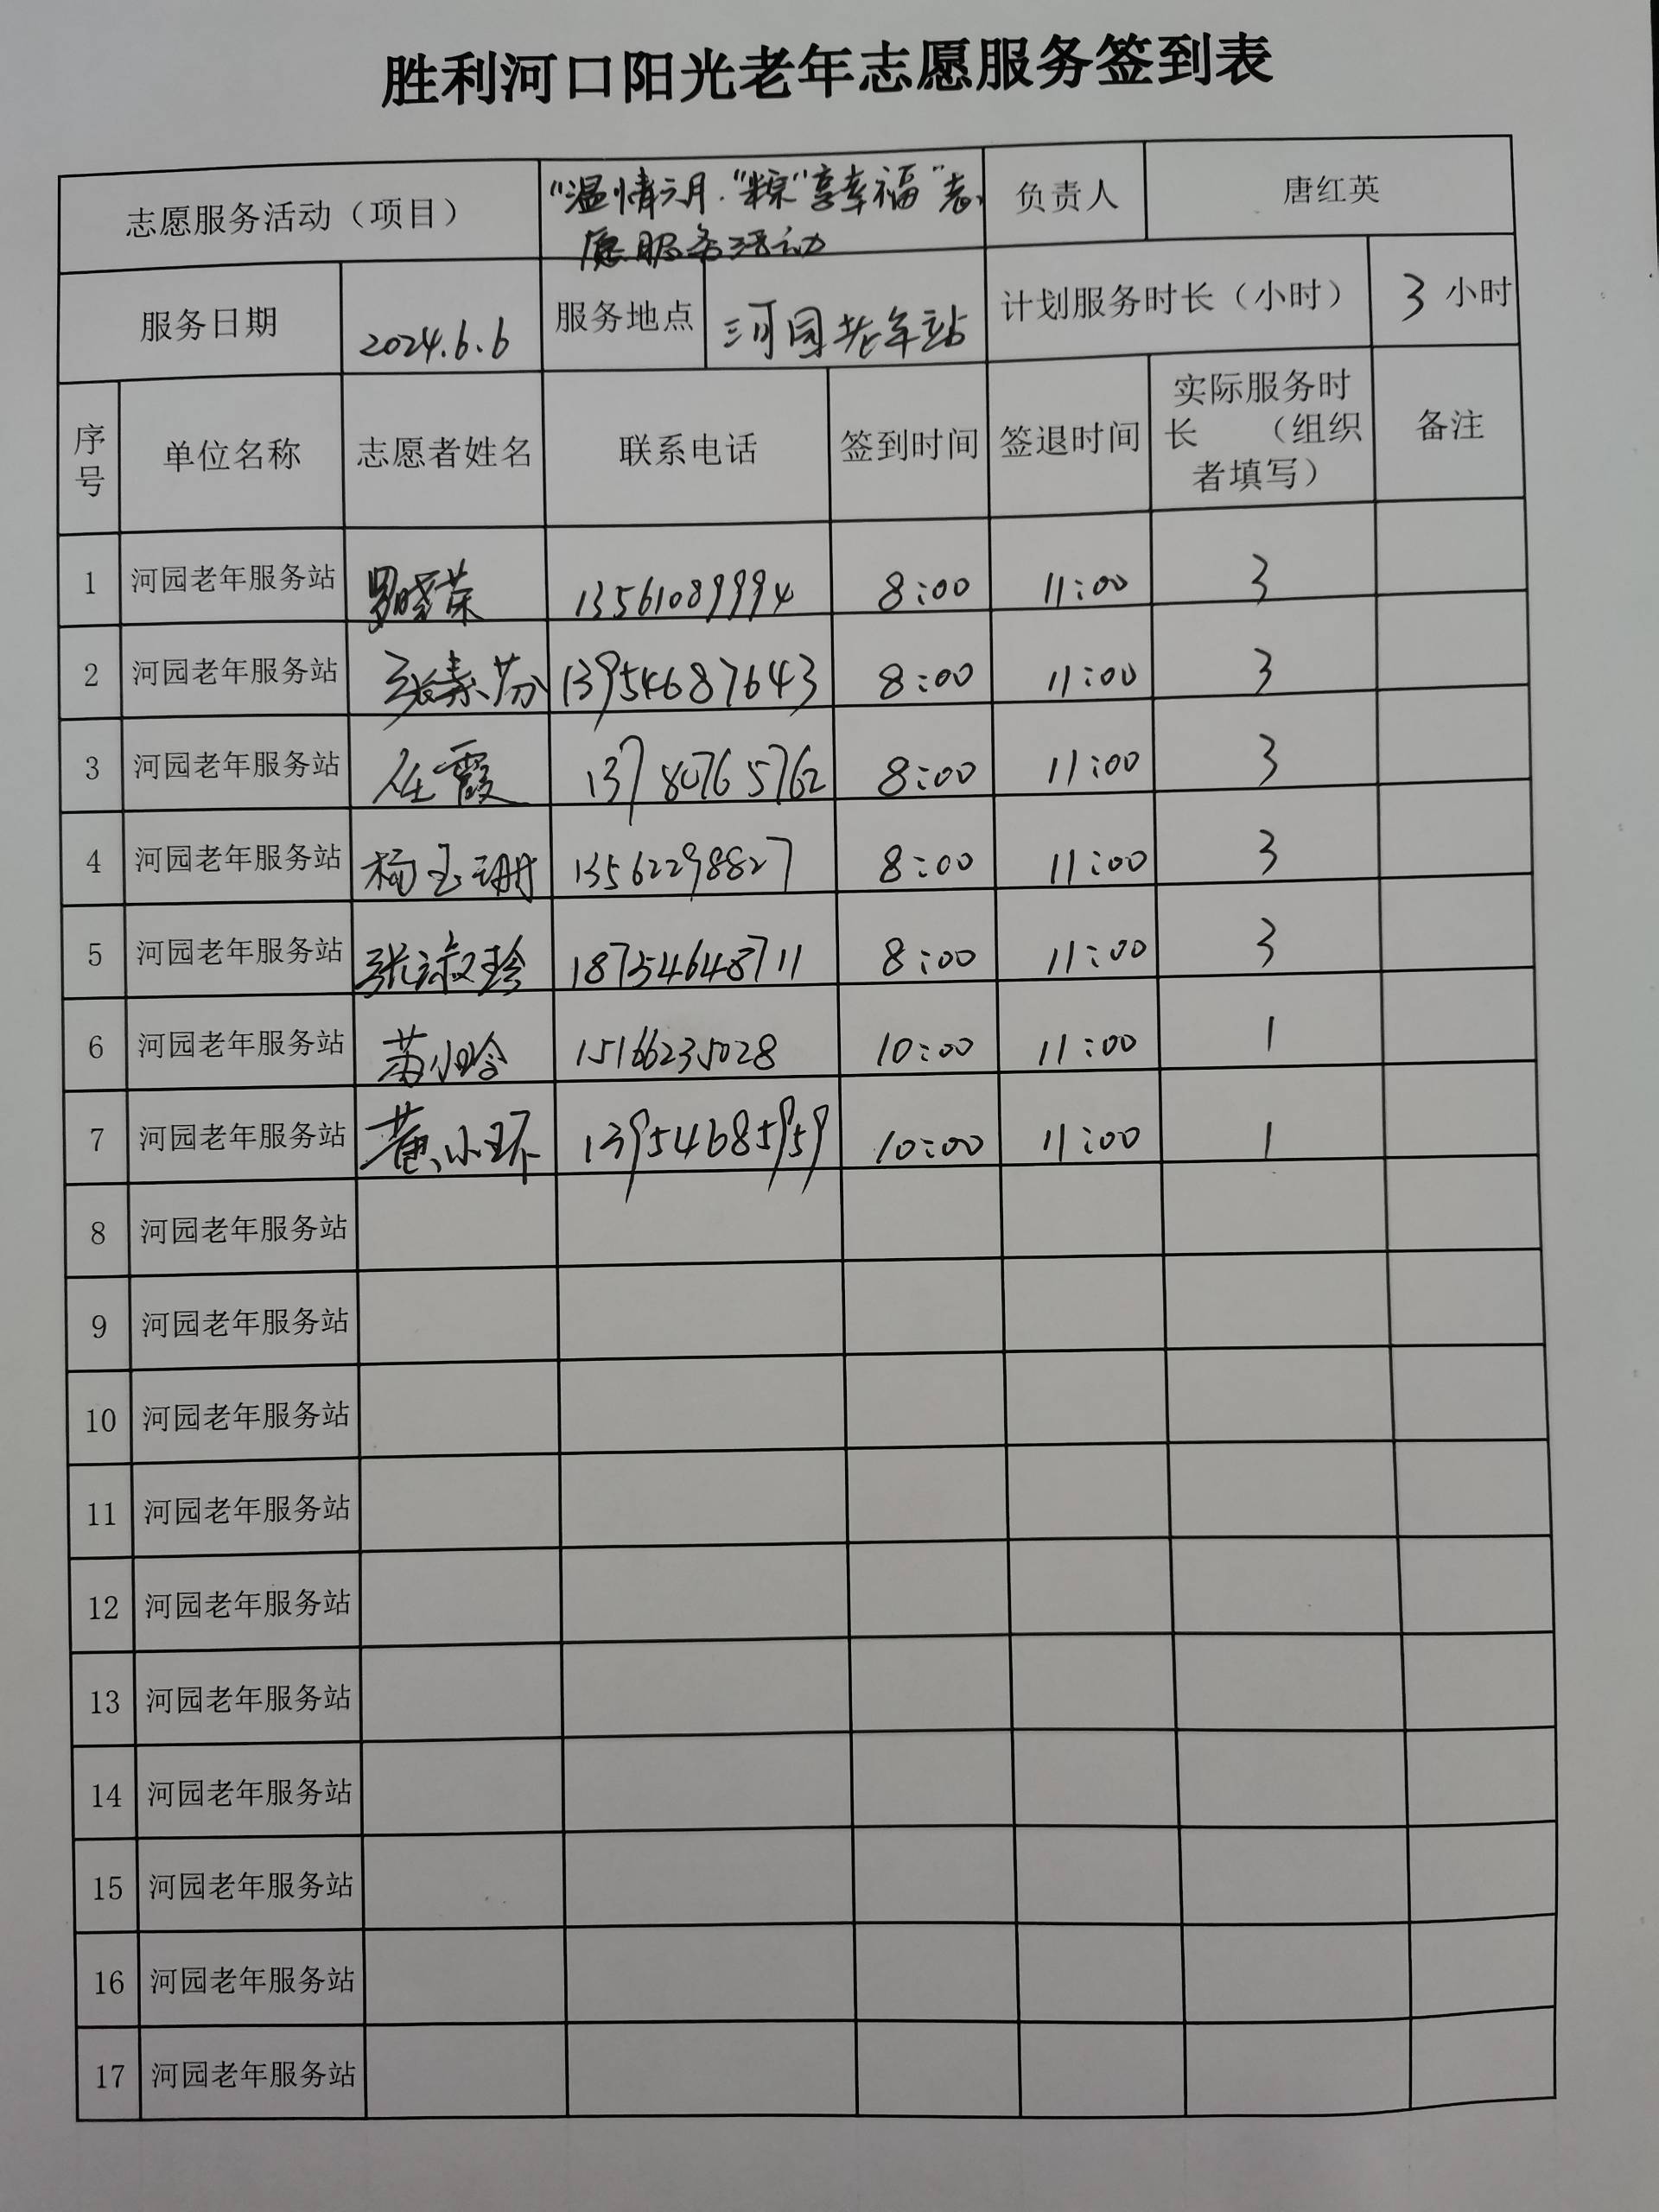 胜利河口阳光老年志愿服务签到表
志愿服务活动（项目） "温情六月·"粽"享幸福"志 负责人 唐红英
愿服务活动
服务日期 2024.6.6 服务地点 河园老年站 计划服务时长（小时） 3 小时
序号 单位名称 志愿者姓名 联系电话 签到时间 签退时间 实际服务时长 （组织者填写） 备注
1 河园老年服务站 罗晓荣 13561089994 8:00 11:00 3
2 河园老年服务站 张素芬 13954687643 8:00 11:00 3
3 河园老年服务站 任霞 13780765762 8:00 11:00 3
4 河园老年服务站 杨玉珊 13562298827 8:00 11:00 3
5 河园老年服务站 张淑玲 18754648711 8:00 11:00 3
6 河园老年服务站 15166235028 10:00 11:00 1
7 河园老年服务站 黄小环 13954685959 10:00 11:00 1
8 河园老年服务站
9 河园老年服务站
10 河园老年服务站
11 河园老年服务站
12 河园老年服务站
13 河园老年服务站
14 河园老年服务站
15 河园老年服务站
16 河园老年服务站
17 河园老年服务站